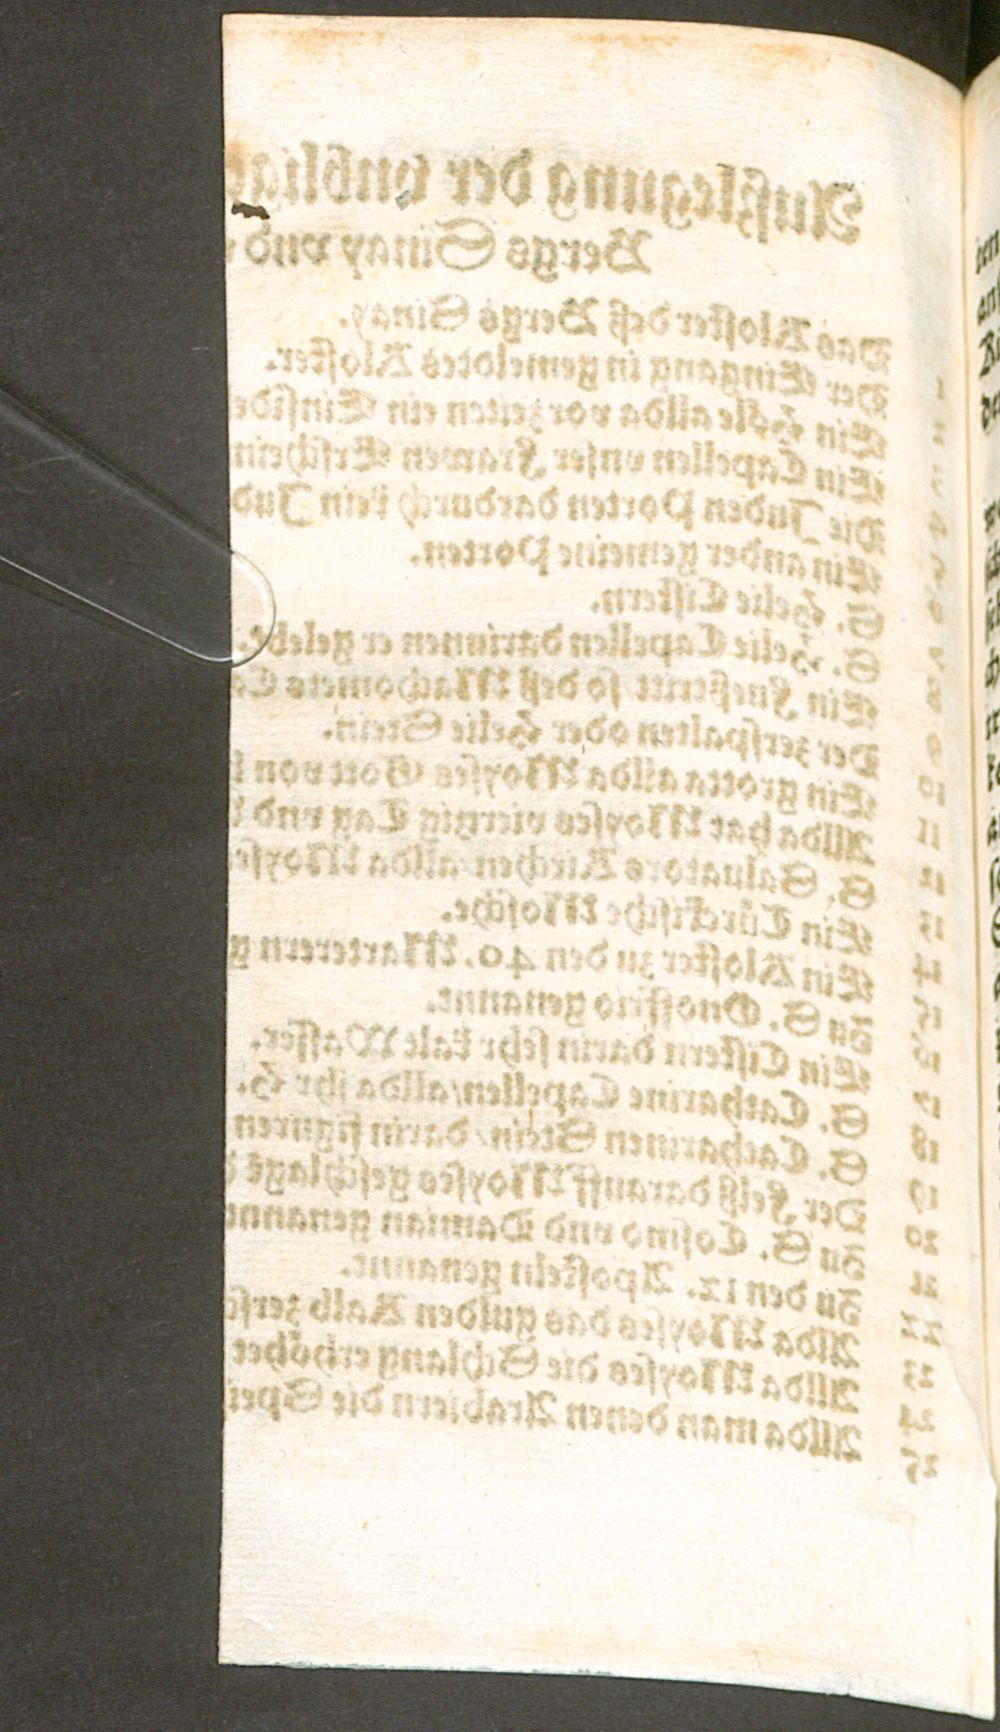 Außlegung der vnd
Bergs Sinay vnd
1 Das Kloster deß Bergs Sinay.
2 Der Eingang in gemeldtes Kloster.
3 Ein Höle allda vorzeiten ein Einside
4 Ein Capellen vnser Frawen Erschein
5 Die Juden Porten dardurch kein Jud
6 Ein ander gemeine Porten.
7 S. Helie Cistern.
8 S. Helie Capellen darinnen er gelebt.
9 Ein Fueßtritt so deß Machomets Ca
10 Der zerspalten oder Helie Stein.
11 Ein grotta allda Moyses Gott von
12 Allda hat Moyses viertzig Tag vnd
13 S. Saluators Kirchen allda Moyse
14 Ein Türckische Mosche.
15 Ein Kloster zu den 40. Marterern g
16 Zu S. Onoffrio genannt.
17 Ein Cistern darin sehr kalt Wasser.
18 S. Catharine Capellen/allda ihr H.
19 S. Catharinen Stein/darin figuren
20 Der Felß darauff Moyses geschlagē
21 Zu S. Cosmo vnd Damian genannt
22 Zu den 12. Aposteln genannt.
23 Allda Moyses das gulden Kalb zers
24 Allda Moyses die Schlang erhöhet
25 Allda man denen Arabiern die Spei